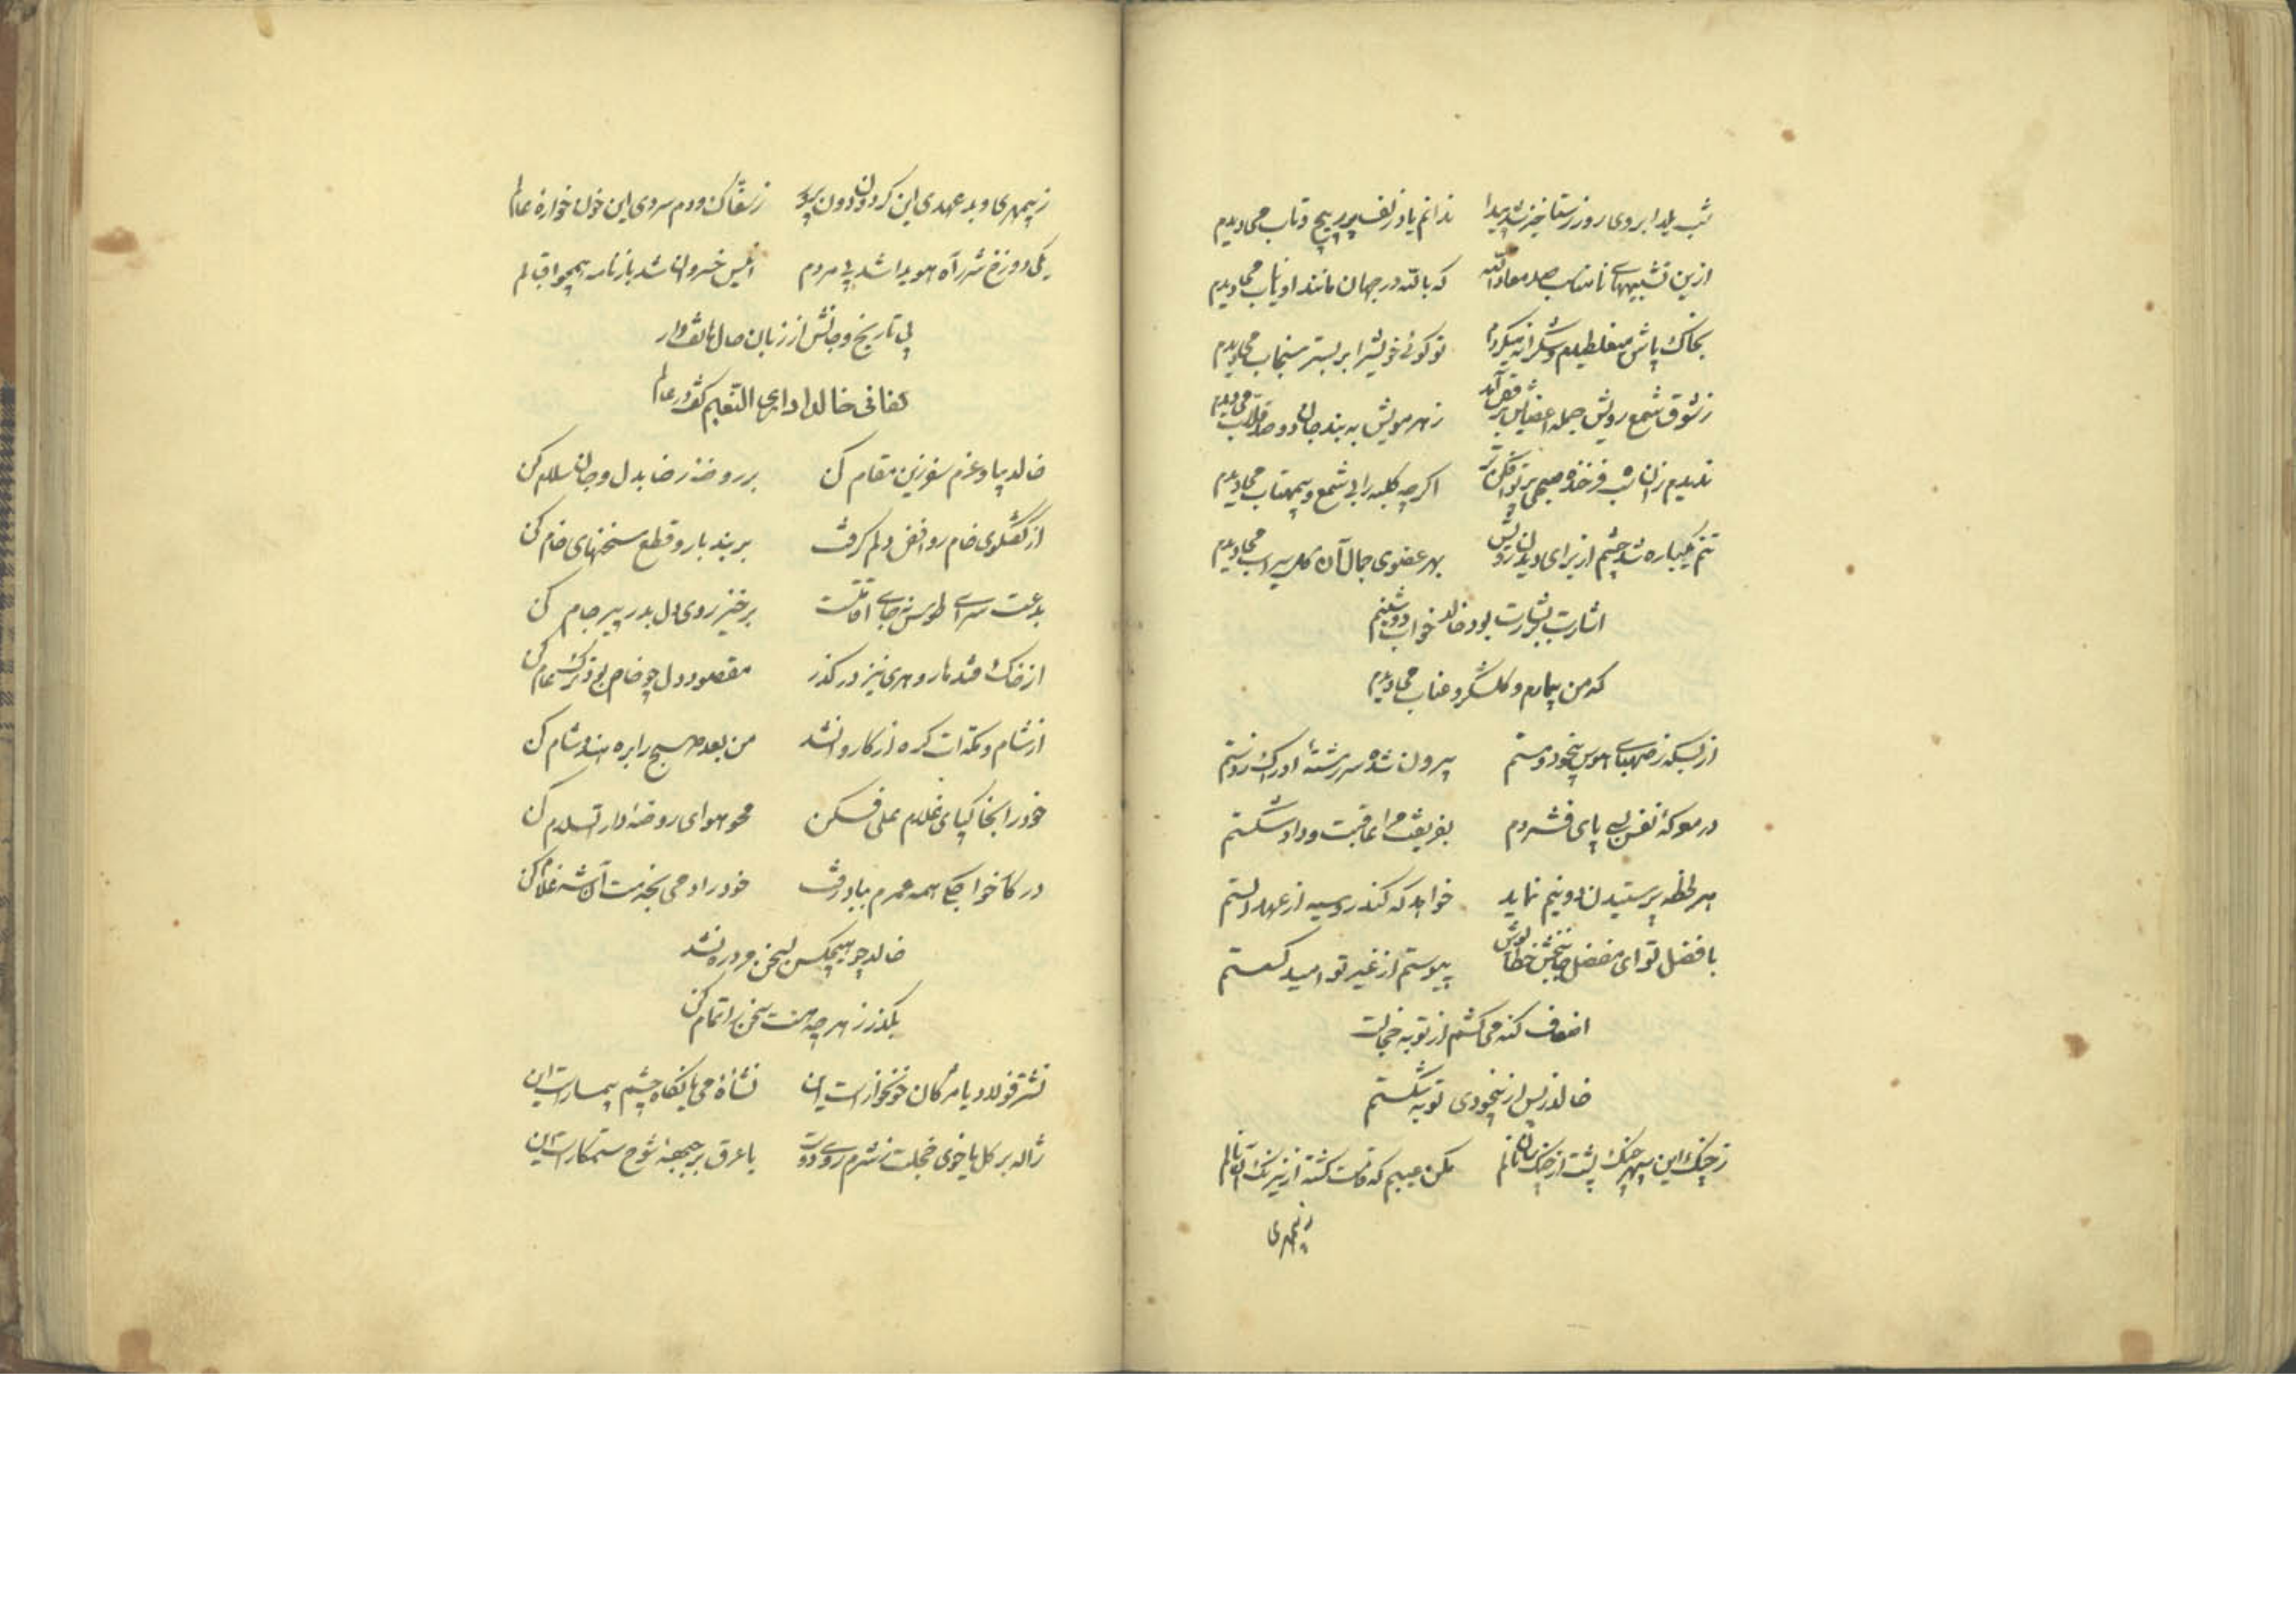 شب یلدا بروی روز رستاخیز شد پیدا ندانم یا در زلف پر پیچ و تاب میدیدم
ازین تشبیهای نامناسب صد معاذالله که بالله در جهان مانند او نایاب میدیدم
بخاک پاش میغلطیدم و شکرانه میکردم تو گوئی خویش را بر بستر سنجاب میدیدم
ز شوق شمع رویش جمله اعضایم برقص آمد ز هر مویش به بند جان دو صد قلاب میدیدم
ندیدم زان شب فرخنده صبحی پرتو افکن تر اگرچه کلبه را بی شمع و بیمهتاب میدیدم
تنم یکباره شد چشم از برای دیدن رویش بهر عضوی جمال آن گل سیراب میدیدم
اشارت بشارت بود خالد خواب دوشینم
که من بیمارم و گلشکر و عناب میدیدم
از بسکه ز صهبای هوس بیخود و مستم بیرون شده سر رشتهٔ ادراک ز دستم
در معرکهٔ نفس بسی پای فشردم بفریفت مرا عاقبت و داد شکستم
هر لحظه پرستیدن دونیم نماید خواهد که کند روسیه از عهد الستم
با فضل تو ای مفضل جانبخش خطاپوش پیوستم از غیر تو امید گسستم
اضعاف گنه می کشم از توبه خجالت
خالد ز پس از بیخودی توبه شکستم
ز چنگ این سپهر چنگ پشت از چنگ سان نالم مکن عیبم که قامت گشته از نیرنگ او نالم
ز بیمهری
ز بیمهری و بد عهدی این گردون دون پرور ز سفاکی و دم سردی این خونخواره عالم
یکی دوزخ شرر آه هویدا شد پی مردم انیس خسروان شد باز نامه همچو اقبالم
پی تاریخ وفاتش از زبان حال هاتف وار
کفانی خالدا دای النعیم کشور عالم
خالد بیا و عزم سفر زین مقام کن بر روضهٔ رضا بدل و جان سلام کن
از گفتگوی خام روافض دلم گرفت بربند بار و قطع سخنهای خام کن
بدعت سرای طوس نه جای اقامتست برخیز روی دل بدر پیر جام کن
از خاک قندهار و هری نیز در گذر مقصود دل چو خاص بود ترک عام کن
از شام و مکه ات گره از کار وا نشد من بعد صبح را بره هند شام کن
خود را بخاک پای غلام علی فکن محو هوای روضهٔ دار السلام کن
در کار خواجگی همه عمرم بباد رفت خود را دمی بخدمت آن شه غلام کن
خالد چو هیچکس بسخن مرد ره نشد
بگذر ز هر چه هست سخن را تمام کن
نشتر فولاد یا مژگان خونخوار است این نشاهٔ می یا نگاه چشم بیمار است این
ژاله بر گل یا خوی خجلت ز شرم روی دوست یا عرق بر جبهه شوخ ستمکار است این